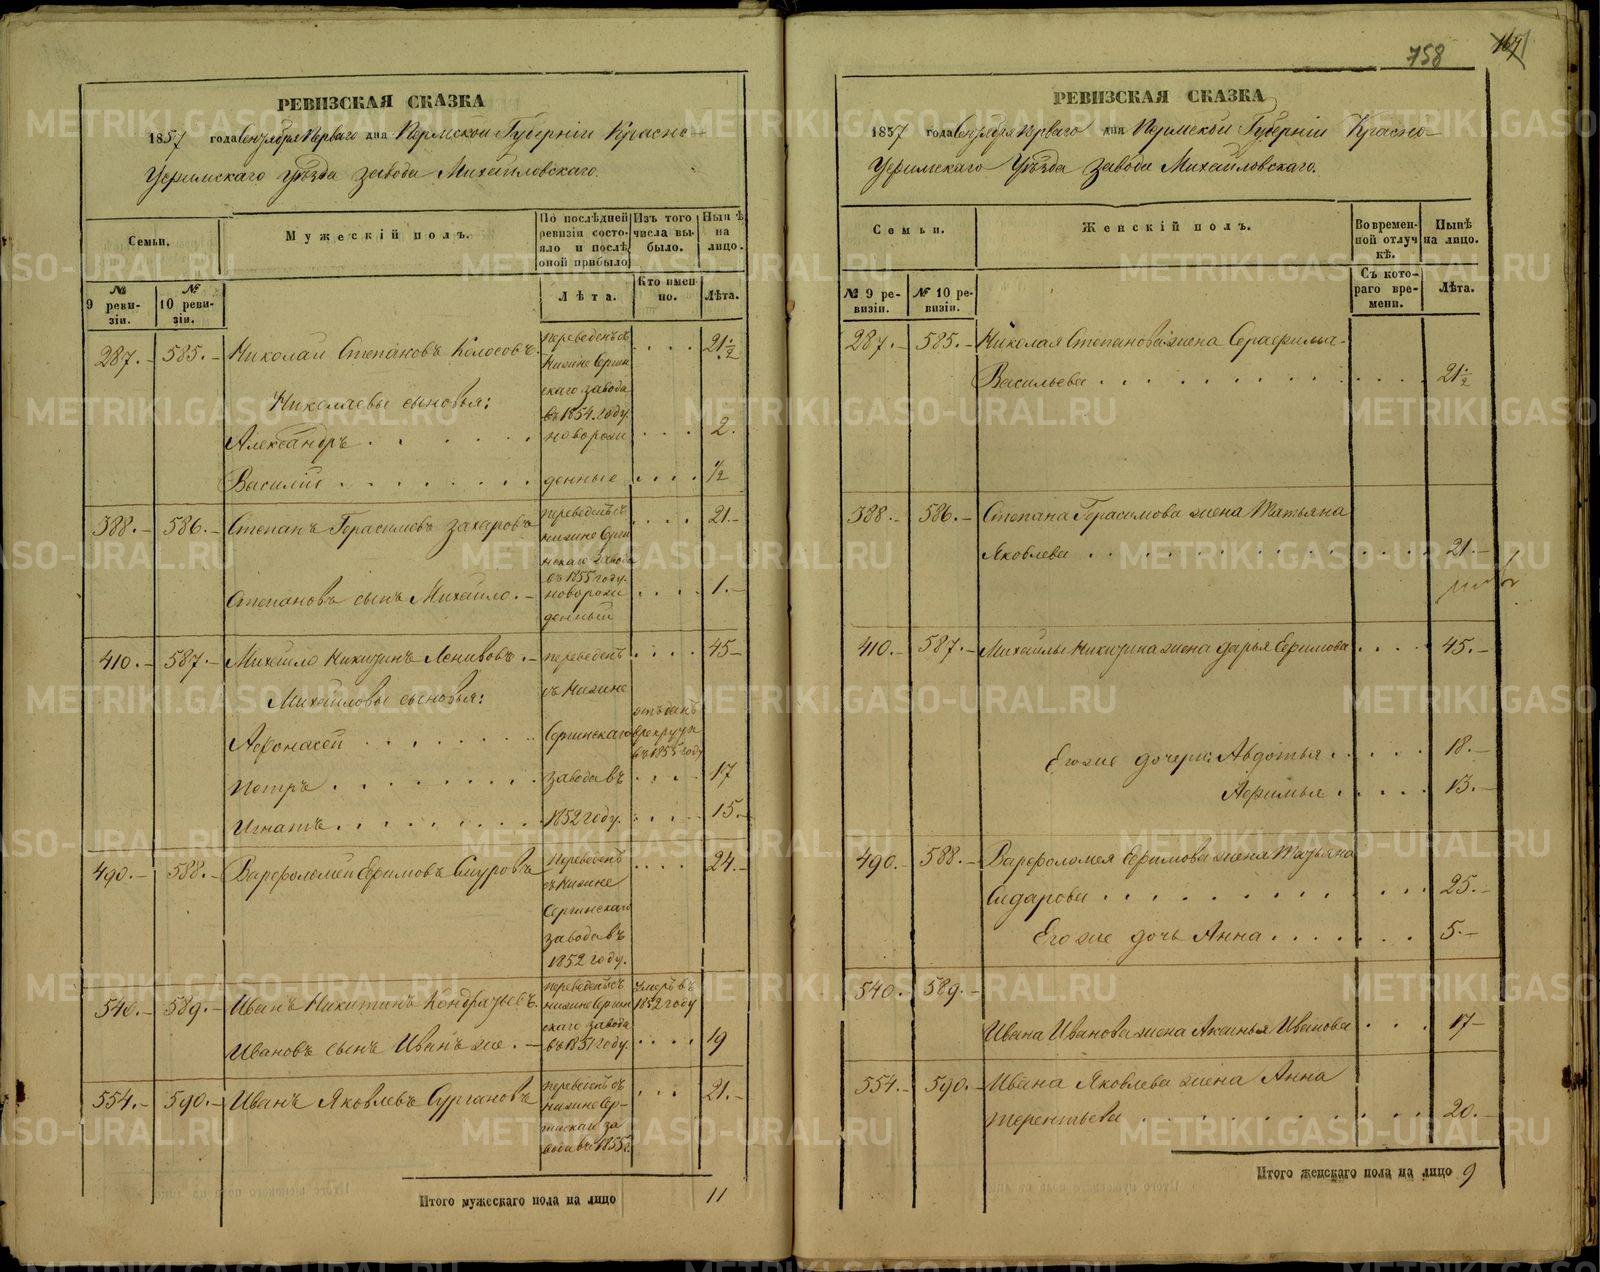 758
РЕВИЗСКАЯ СКАЗКА
1857 года Сентября Перваго дня Пермской Губерніи Красно-
Уфимскаго Уѣзда завода Михайловскаго.
Семьи.
Мужескій полъ.
По послѣдней ревизіи состояло и послѣ оной прибыло
Изъ того числа выбыло.
Нынѣ на лицо.
№ 9 ревизіи.
№ 10 ревизіи.
Лѣта.
Кто именно.
Лѣта.
287.- 585.- Николай Степановъ Колосовъ. переведенъ съ . . . . 21½
Нижне Сергин
скаго завода
въ 1854. году.
Николаевы сыновья:
Александръ . . . . . новорож . . . 2.
Василій . . . . . . . . денные . . . . ½
388.- 586.- Степанъ Герасимовъ Захаровъ переведенъ съ . . . . 21.-
нижне Серги
нскаго завода
въ 1855 году.
Степановъ сынъ Михайло.- новорож . . . . 1.-
денный
410.- 587.- Михайло Никитинъ Ленивовъ.- переведенъ . . . . 45-
Михайловы сыновья: съ Нижне
отъданъ
Афонасей . . . . . . . Сергинскаго врекруты
въ 1855 году
Петръ . . . . . . . . завода въ . . . . 17
Игнатъ . . . . . . . . . 1852 году. . . . . 15.-
490.- 588.- Варфоломей Ефимовъ Смуровъ Переведенъ . . . . 24.-
съ Нижне
Сергинскаго
завода въ
1852 году.
540.- 589.- Иванъ Никитинъ Кондратьевъ. переведенъ съ умеръ въ
нижне Сергин 1852 году
скаго завода
Ивановъ сынъ Иванъ же.- въ 1851 году. . . . . 19
554.- 590.- Иванъ Яковлевъ Сургановъ переведенъ съ . . . 21.-
нижне Сер-
гинскаго за
вода въ 1855 г.
Итого мужескаго пола на лицо 11
РЕВИЗСКАЯ СКАЗКА
1857 года Сентября Перваго дня Пермской Губерніи Красно-
Уфимскаго Уѣзда завода Михайловскаго.
Семьи.
Женскій полъ.
Во временной отлучкѣ.
Нынѣ на лицо.
№ 9 ревизіи.
№ 10 ревизіи.
Съ котораго времени.
Лѣта.
287.- 585.- Николая Степанова жена Серафима-
Васильева . . . . . . . . . . . . . . . 21½
388.- 586.- Степана Герасимова жена Татьяна
Яковлева . . . . . . . . . . . . . . . 21.-
410.- 587.- Михайлы Никитина жена Дарья Ефимова . . . . 45.-
Его же дочери: Авдотья . . . . . 18.-
Афимья . . . . . 13.-
490.- 588.- Варфоломея Ефимова жена Татьяна
Сидарова . . . . . . . . . . . . . 25.-
Его же дочь Анна . . . . . . . 5.-
540.- 589.-
Ивана Иванова жена Аксинья Иванова . . . 17-
554.- 590.- Ивана Яковлева жена Анна
Терентьева . . . . . . . . . . . . . 20.-
Итого женскаго пола на лицо 9
METRIKI.GASO-URAL.RU